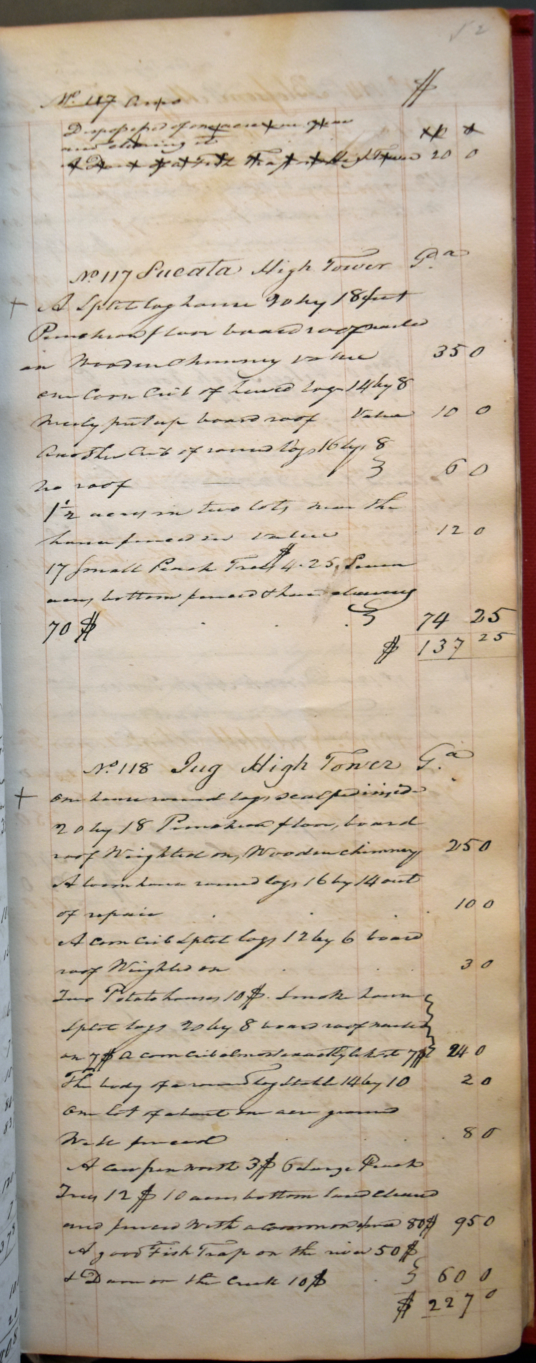 52
No 117 $
Dispossessed of one acre
and clearing it
A Dam & a Fish Trap High Tower 20 0
No 117 Sucata High Tower Ga
+ A Split log house 20 by 18 feet
Puncheon floor board roof nailed
on Wooden Chimney value 35 0
one Corn Crib of hewed logs 14 by 8
Newly put up board roof Value 10 0
Another Crib of round logs 16 by 8
no roof 6 0
1½ acres in two lots near the
house fenced in value 12 0
17 Small Peach Trees $4.25, Seven
acres bottom fenced & clearing
70 $ 74 25
$ 137 25
No 118 Jug High Tower Ga
+ one house round logs scalped inside
20 by 18 Puncheon floor, board
roof Weighted on, Wooden chimney 25 0
A loom house round logs 16 by 14 out
of repair 10 0
A corn Crib Split logs 12 by 6 board
roof Weighted on 3 0
Two Potato houses 10 $. Smoke house
Split logs 20 by 8 board roof nailed
on 7 $ a corn crib almost exactly like it 7 $ 24 0
The body of a round log stable 14 by 10 2 0
one lot of about one acre ground
Well fenced 8 0
A Cowpen worth 3 $ 6 Large Peach
Trees 12 $ 10 acres bottom land cleared
and fenced With a common fence 80 $ 95 0
A good Fish Trap on the river 50 $
& Dam on the Creek 10 $ 60 0
$ 227 0